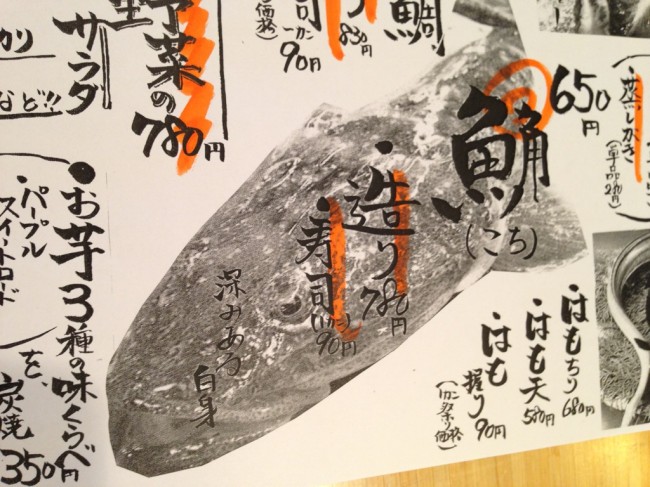 鯛
830円
寿司
一カン
90円
価格)
野菜の
780円
サラダ
など!!
650円
蒸しがき
鯒
(こち)
・造り
780円
・寿司
(1カン)
90円
深みある
白身
はもちり 680円
はも天 580円
はも握り 90円
●お芋3種の味くらべ
パープル
スイートロード
を
炭焼
350円